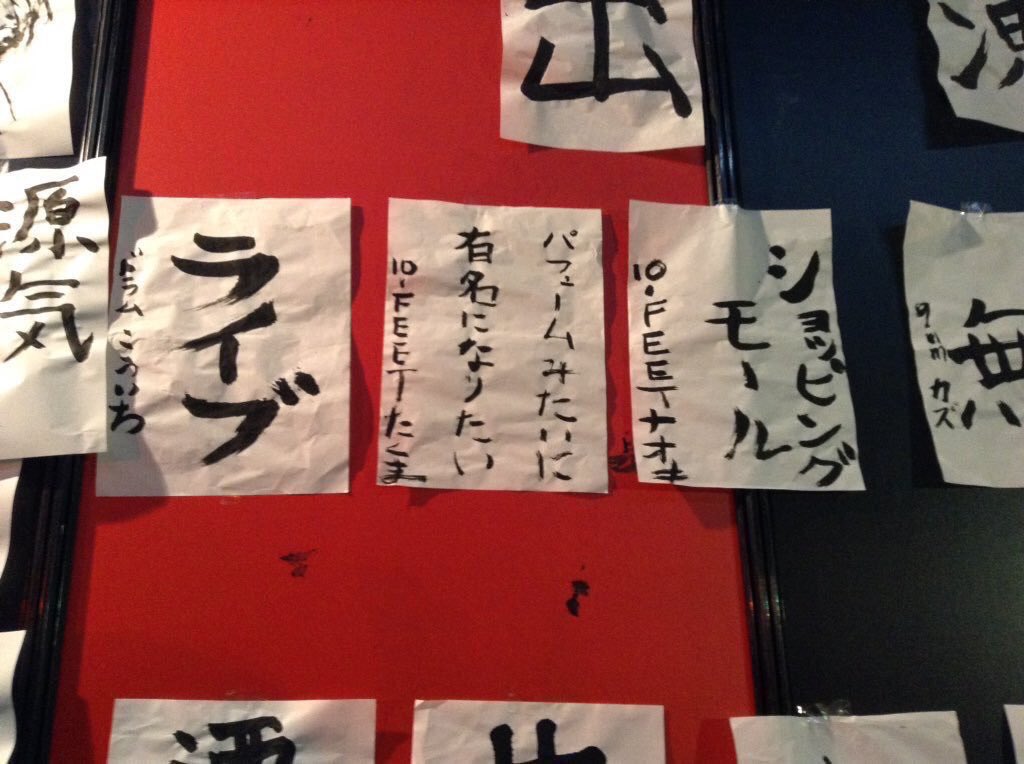 出
源
気
ライブ
ドラム こういち
パフュームみたいに
有名になりたい
10-FEETたくま
ショッピング
モール
10-FEETナオキ
無
9mm カズ
酒